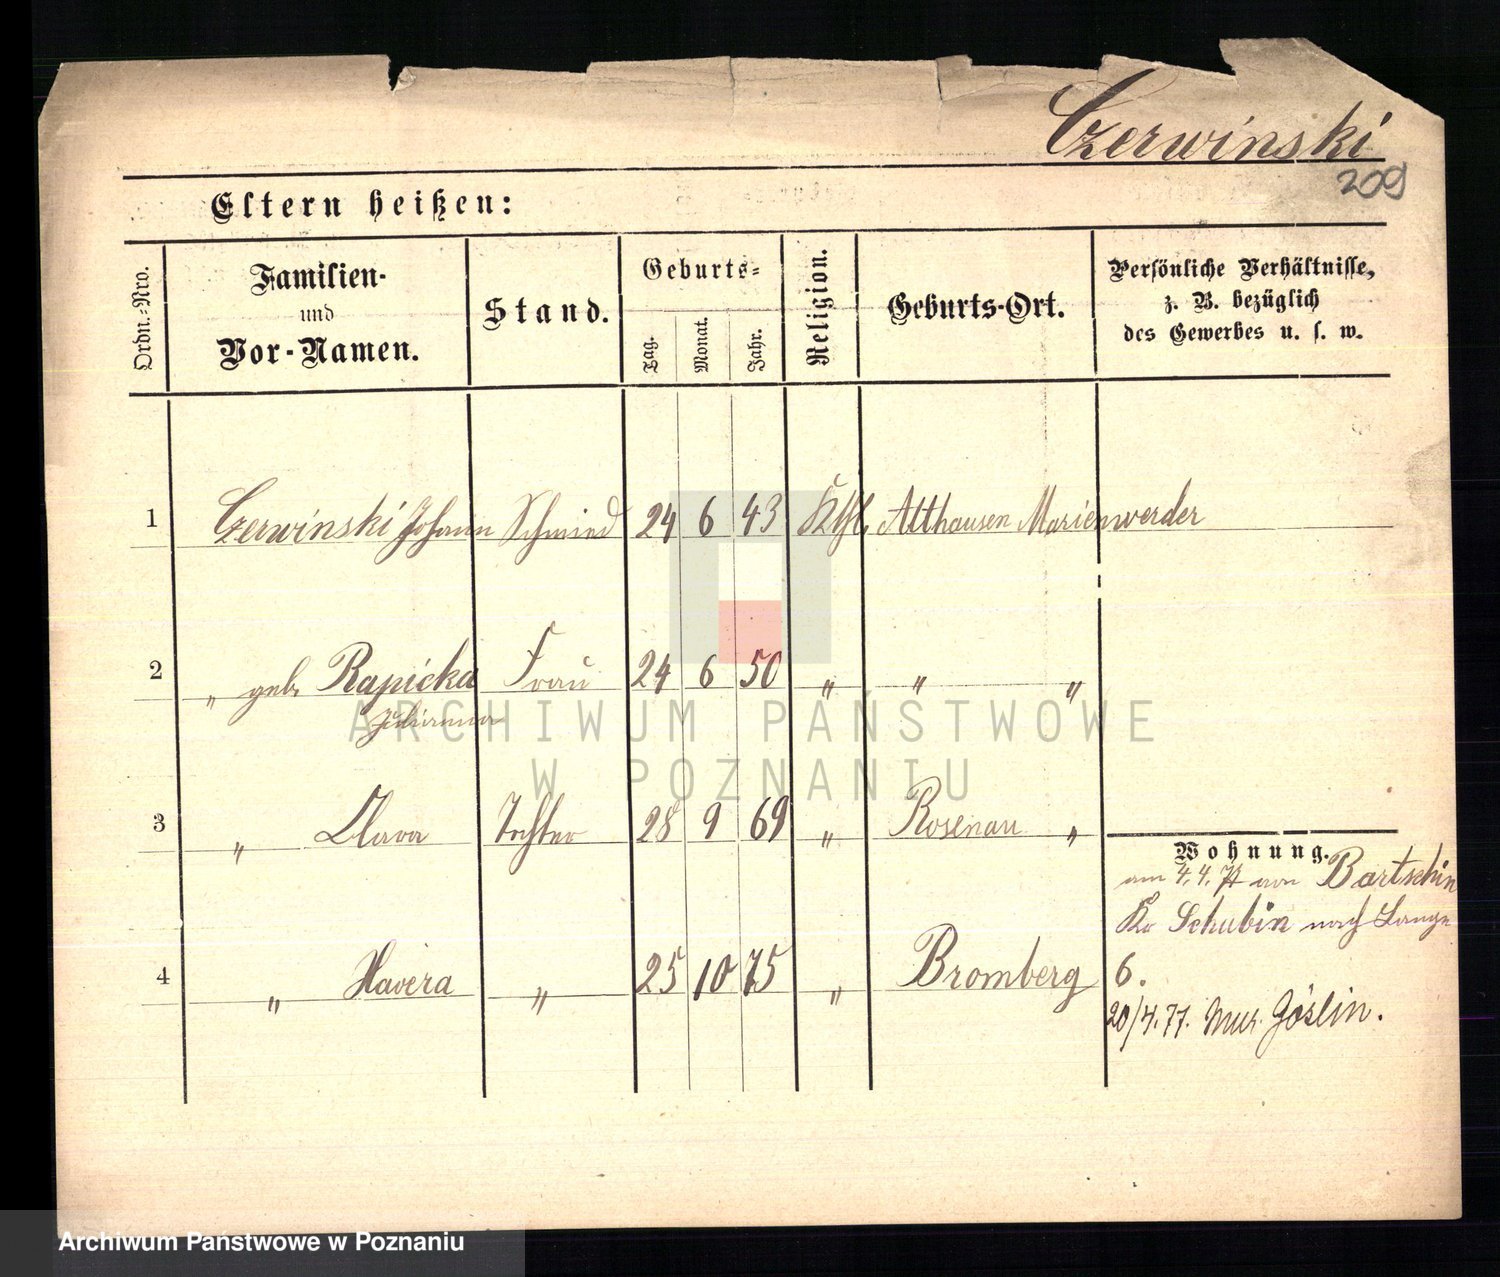 Czerwinski
209
Eltern heißen:
Ordn.-Nro.
Familien-
und
Vor-Namen.
Stand.
Geburts-
Tag.
Monat.
Jahr.
Religion.
Geburts-Ort.
Persönliche Verhältnisse,
z. B. bezüglich
des Gewerbes u. s. w.
1 Czerwinski Johann Schmied 24 6 43 Kth. Althausen Marienwerder
2 " geb. Rapicka Frau 24 6 50 " " "
Julianna
3 " Clara Tochter 28 9 69 " Rosenau "
Wohnung.
am 4.4. von Bartschin
Kr Schubin nach Lange
4 " Xaviera " 25 10 75 " Bromberg 6.
20/4.77. Mur. Goslin.
ARCHIWUM PAŃSTWOWE
W POZNANIU
Archiwum Państwowe w Poznaniu